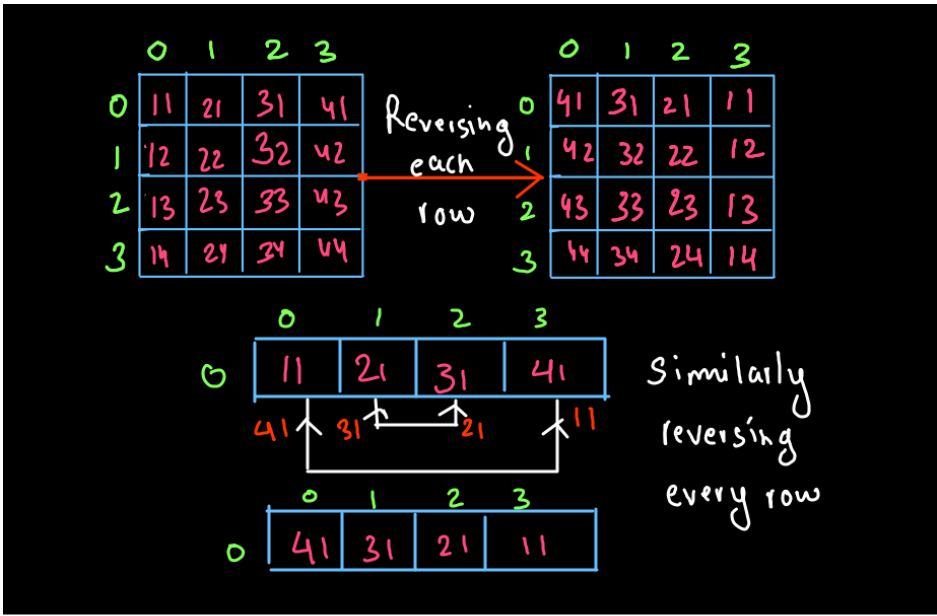 0 1 2 3
0 11 21 31 41
1 12 22 32 42
2 13 23 33 43
3 14 24 34 44
Reversing
each
row
0 1 2 3
0 41 31 21 11
1 42 32 22 12
2 43 33 23 13
3 44 34 24 14
0 1 2 3
0 11 21 31 41
41 31 21 11
Similarly
reversing
every row
0 1 2 3
0 41 31 21 11